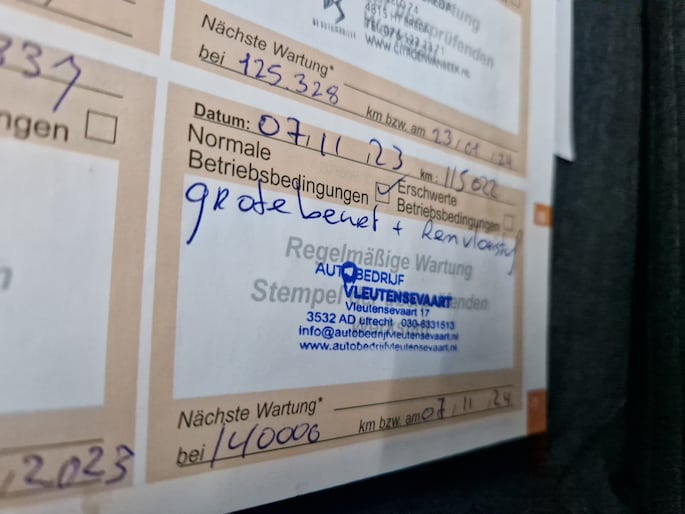 4815
WWW.CITROENVANBEEK.NL
Nächste Wartung*
bei 125.328 km bzw. am 23/01/24
337
ngen
Datum: 07/11/23 km: 115022
Normale Betriebsbedingungen Erschwerte Betriebsbedingungen
grote beurt + Remvloeistof
Regelmäßige Wartung
Stempel
AUTOBEDRIJF
VLEUTENSEVAART
Vleutensevaart 17
3532 AD utrecht 030-8331513
info@autobedrijfvleutensevaart.nl
www.autobedrijfvleutensevaart.nl
Nächste Wartung*
bei 140006 km bzw. am 07/11/24
2023